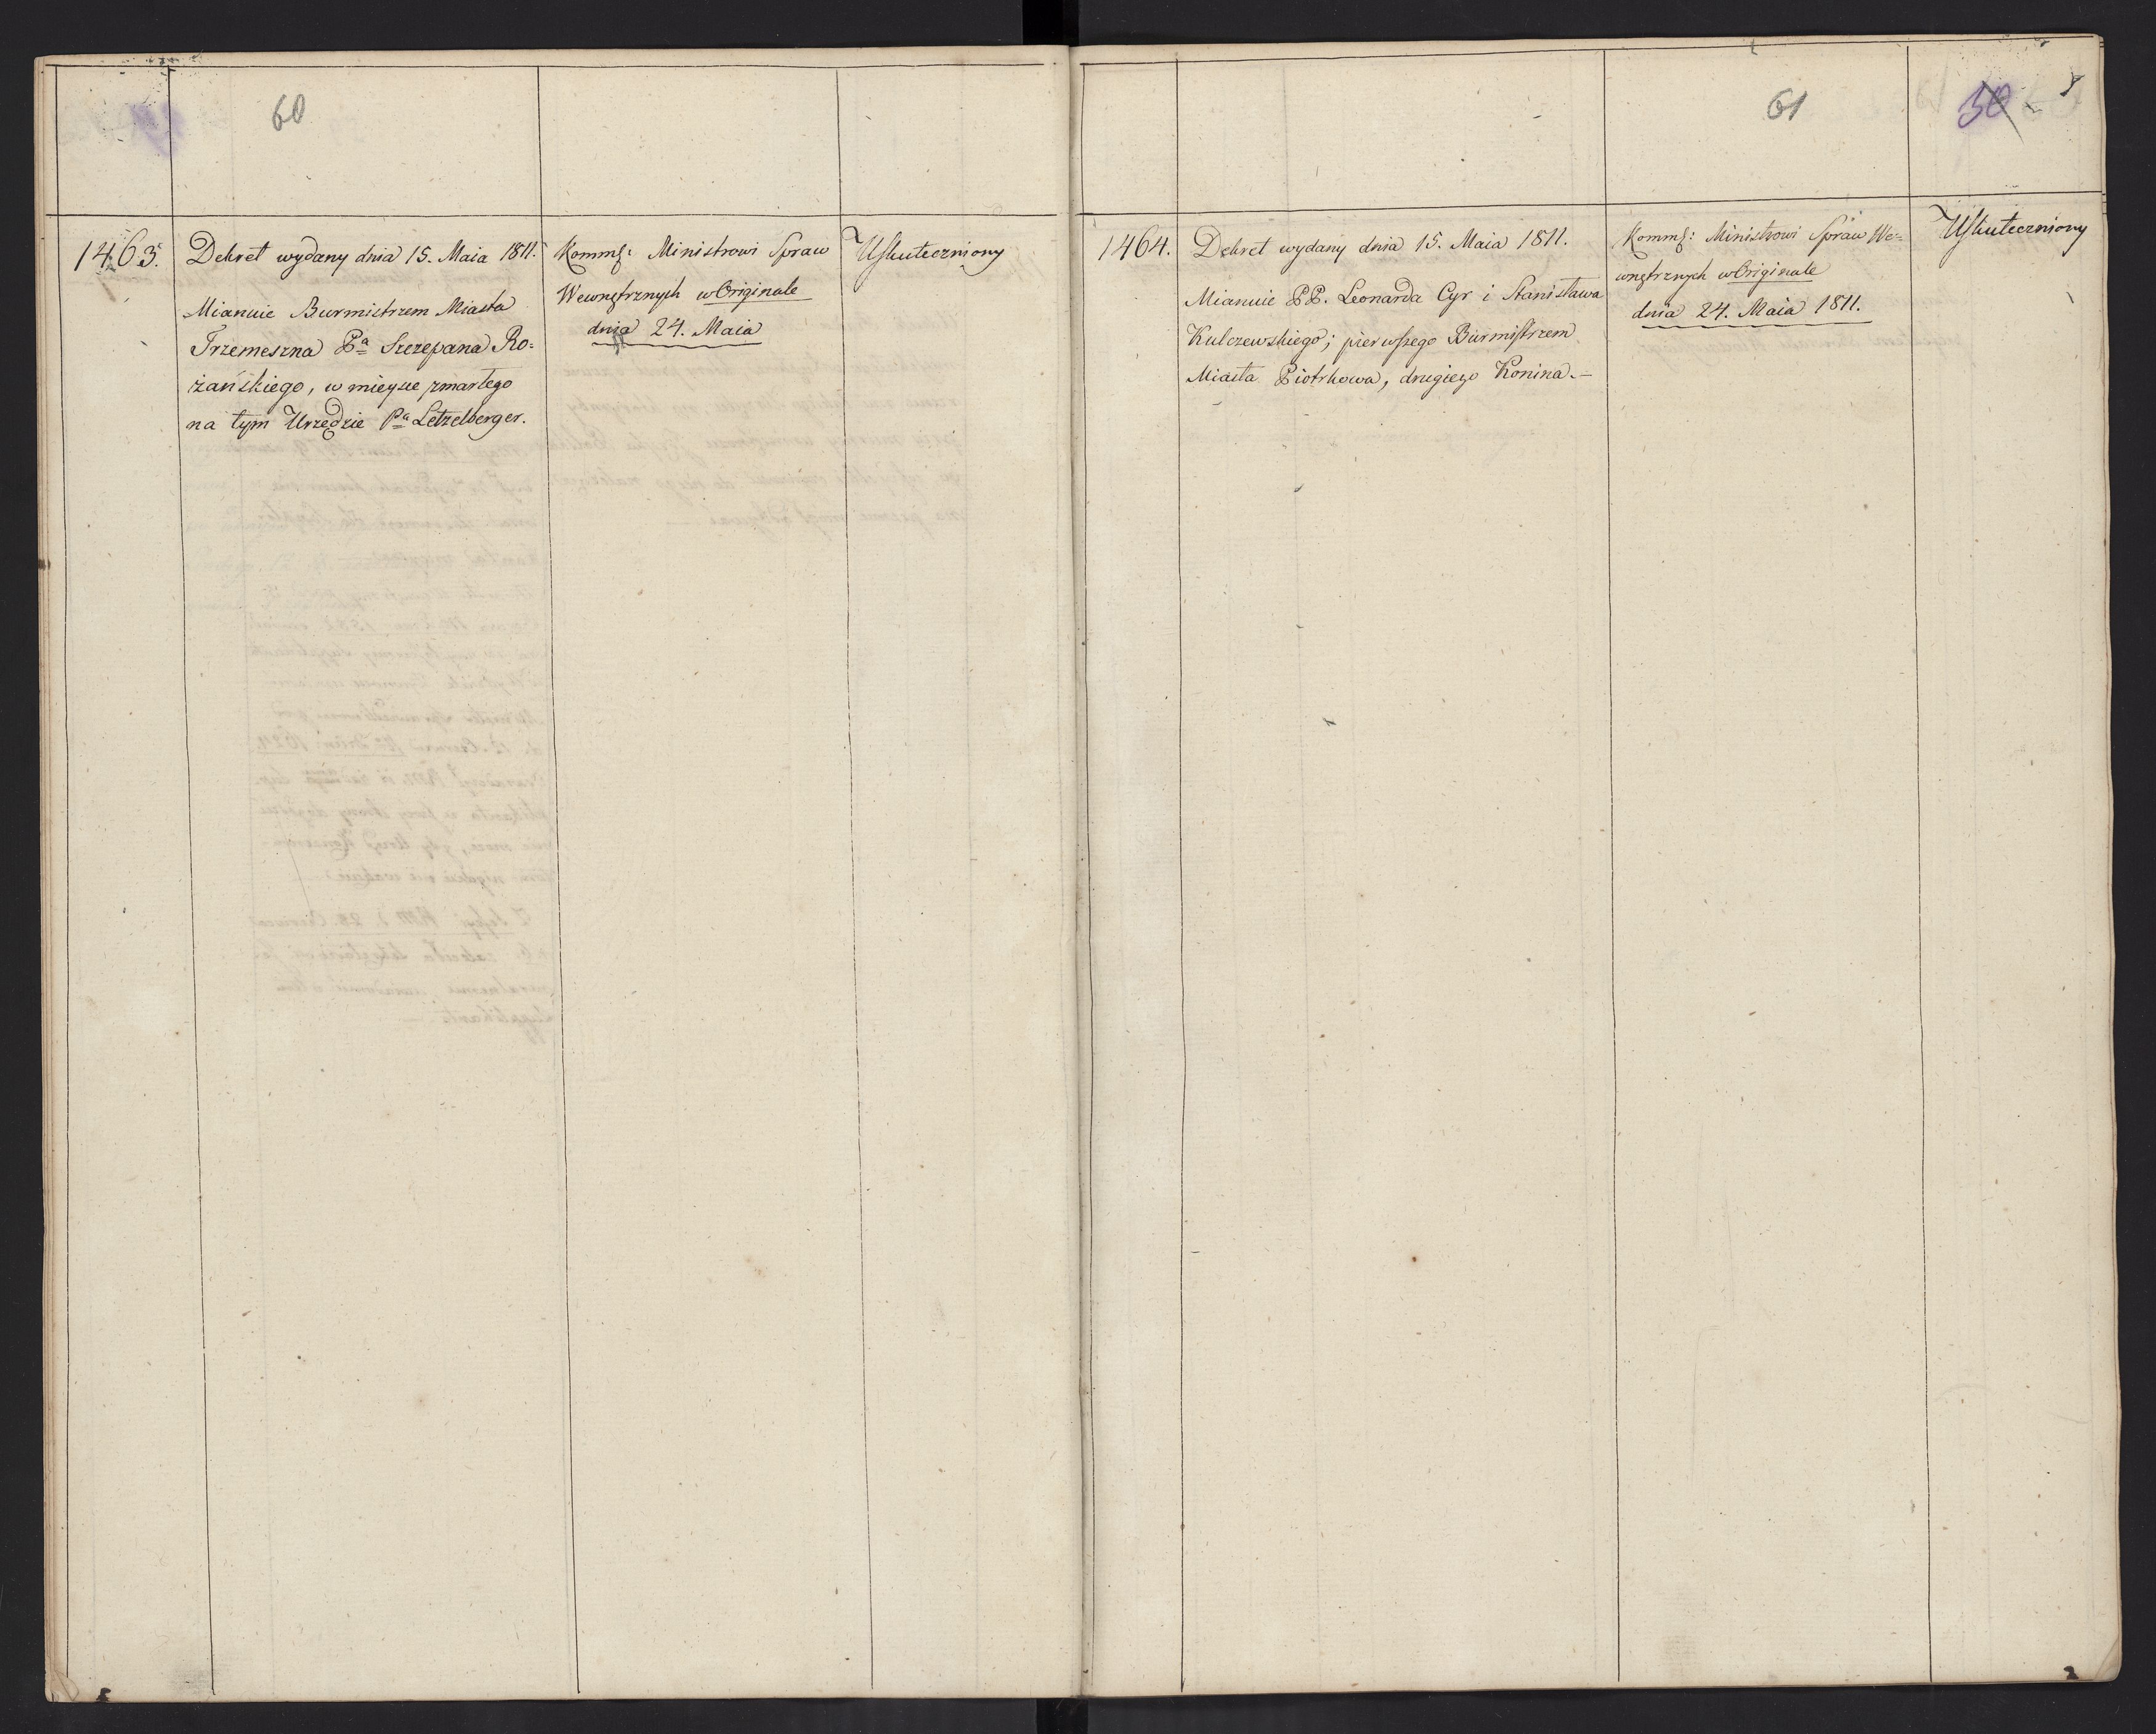 60
1463.
Dekret wydany dnia 15. Maia 1811.
Mianuie Burmistrzem Miasta
Trzemeszna Pa Szczepana Ro=
żańskiego, w mieysce zmarłego
na tym Urzędzie Pa Letzelberger.
Kommß: Ministrowi Spraw
Wewnętrznych w Originale
dnia 24. Maia
Uskuteczniony
61
50
1464.
Dekret wydany dnia 15. Maia 1811.
Mianuie PP. Leonarda Cyr i Stanisława
Kulczewskiego; pierwszego Burmistrzem
Miasta Piotrkowa, drugiego Konina.—
Kommß: Ministrowi Spraw We=
wnętrznych w Originale
dnia 24. Maia 1811.
Uskuteczniony